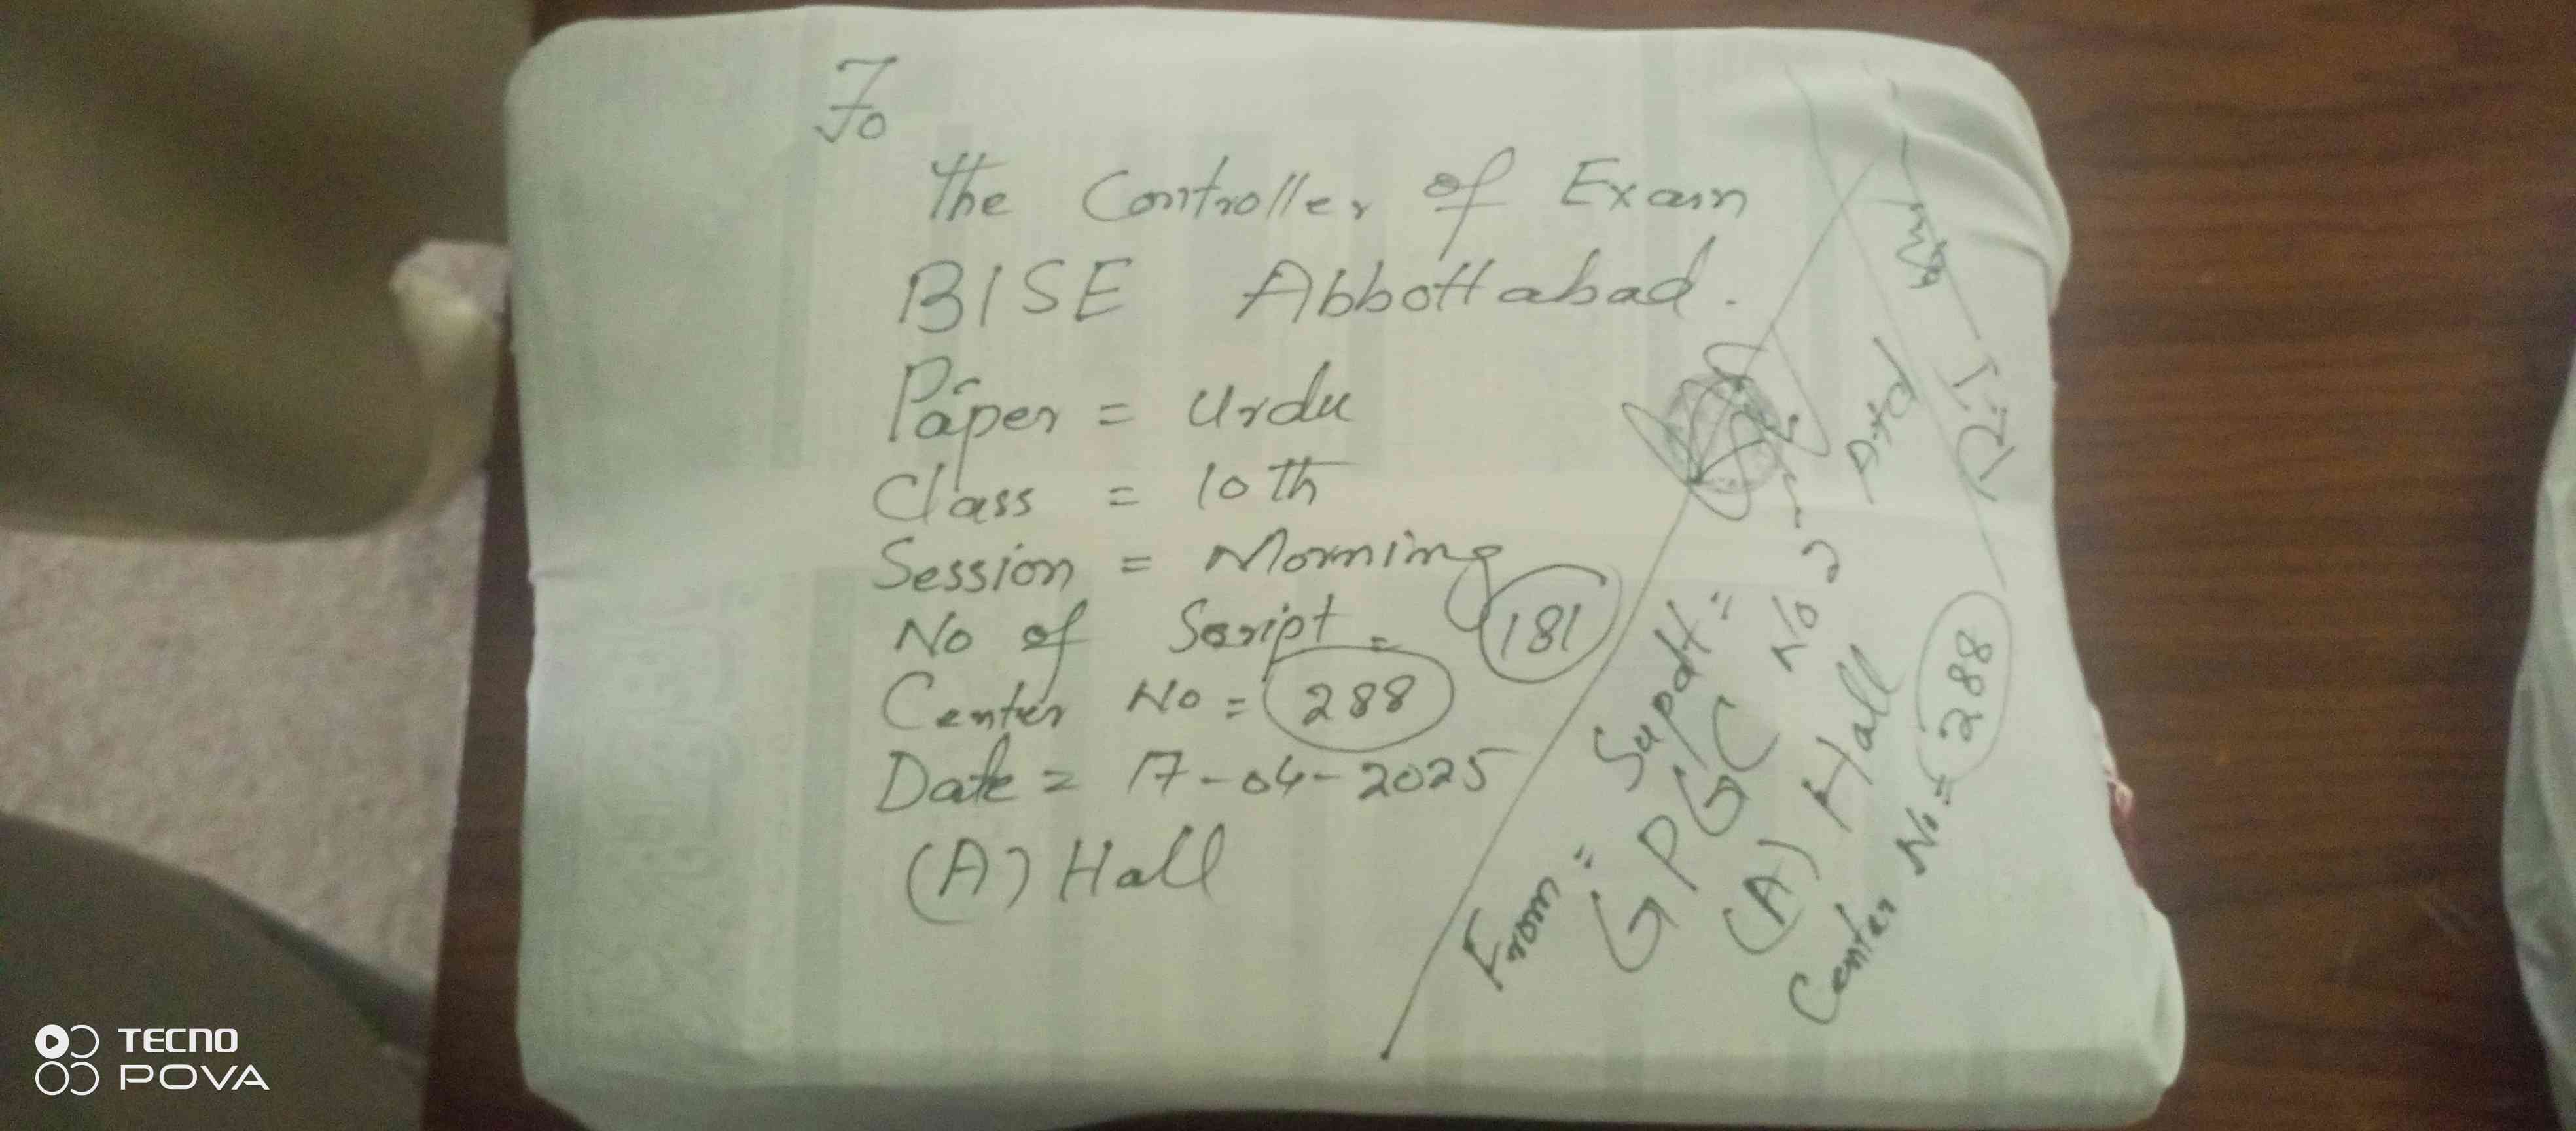 To
The Controller of Exam
BISE Abbottabad.
Paper = Urdu
Class = 10th
Session = Morning
No of Script = 181
Center No = 288
Date = 17-04-2025
(A) Hall
From = Supdt =
GPGC No 2 Atd
(A) Hall
Center No = 288
R-I
TECNO
POVA